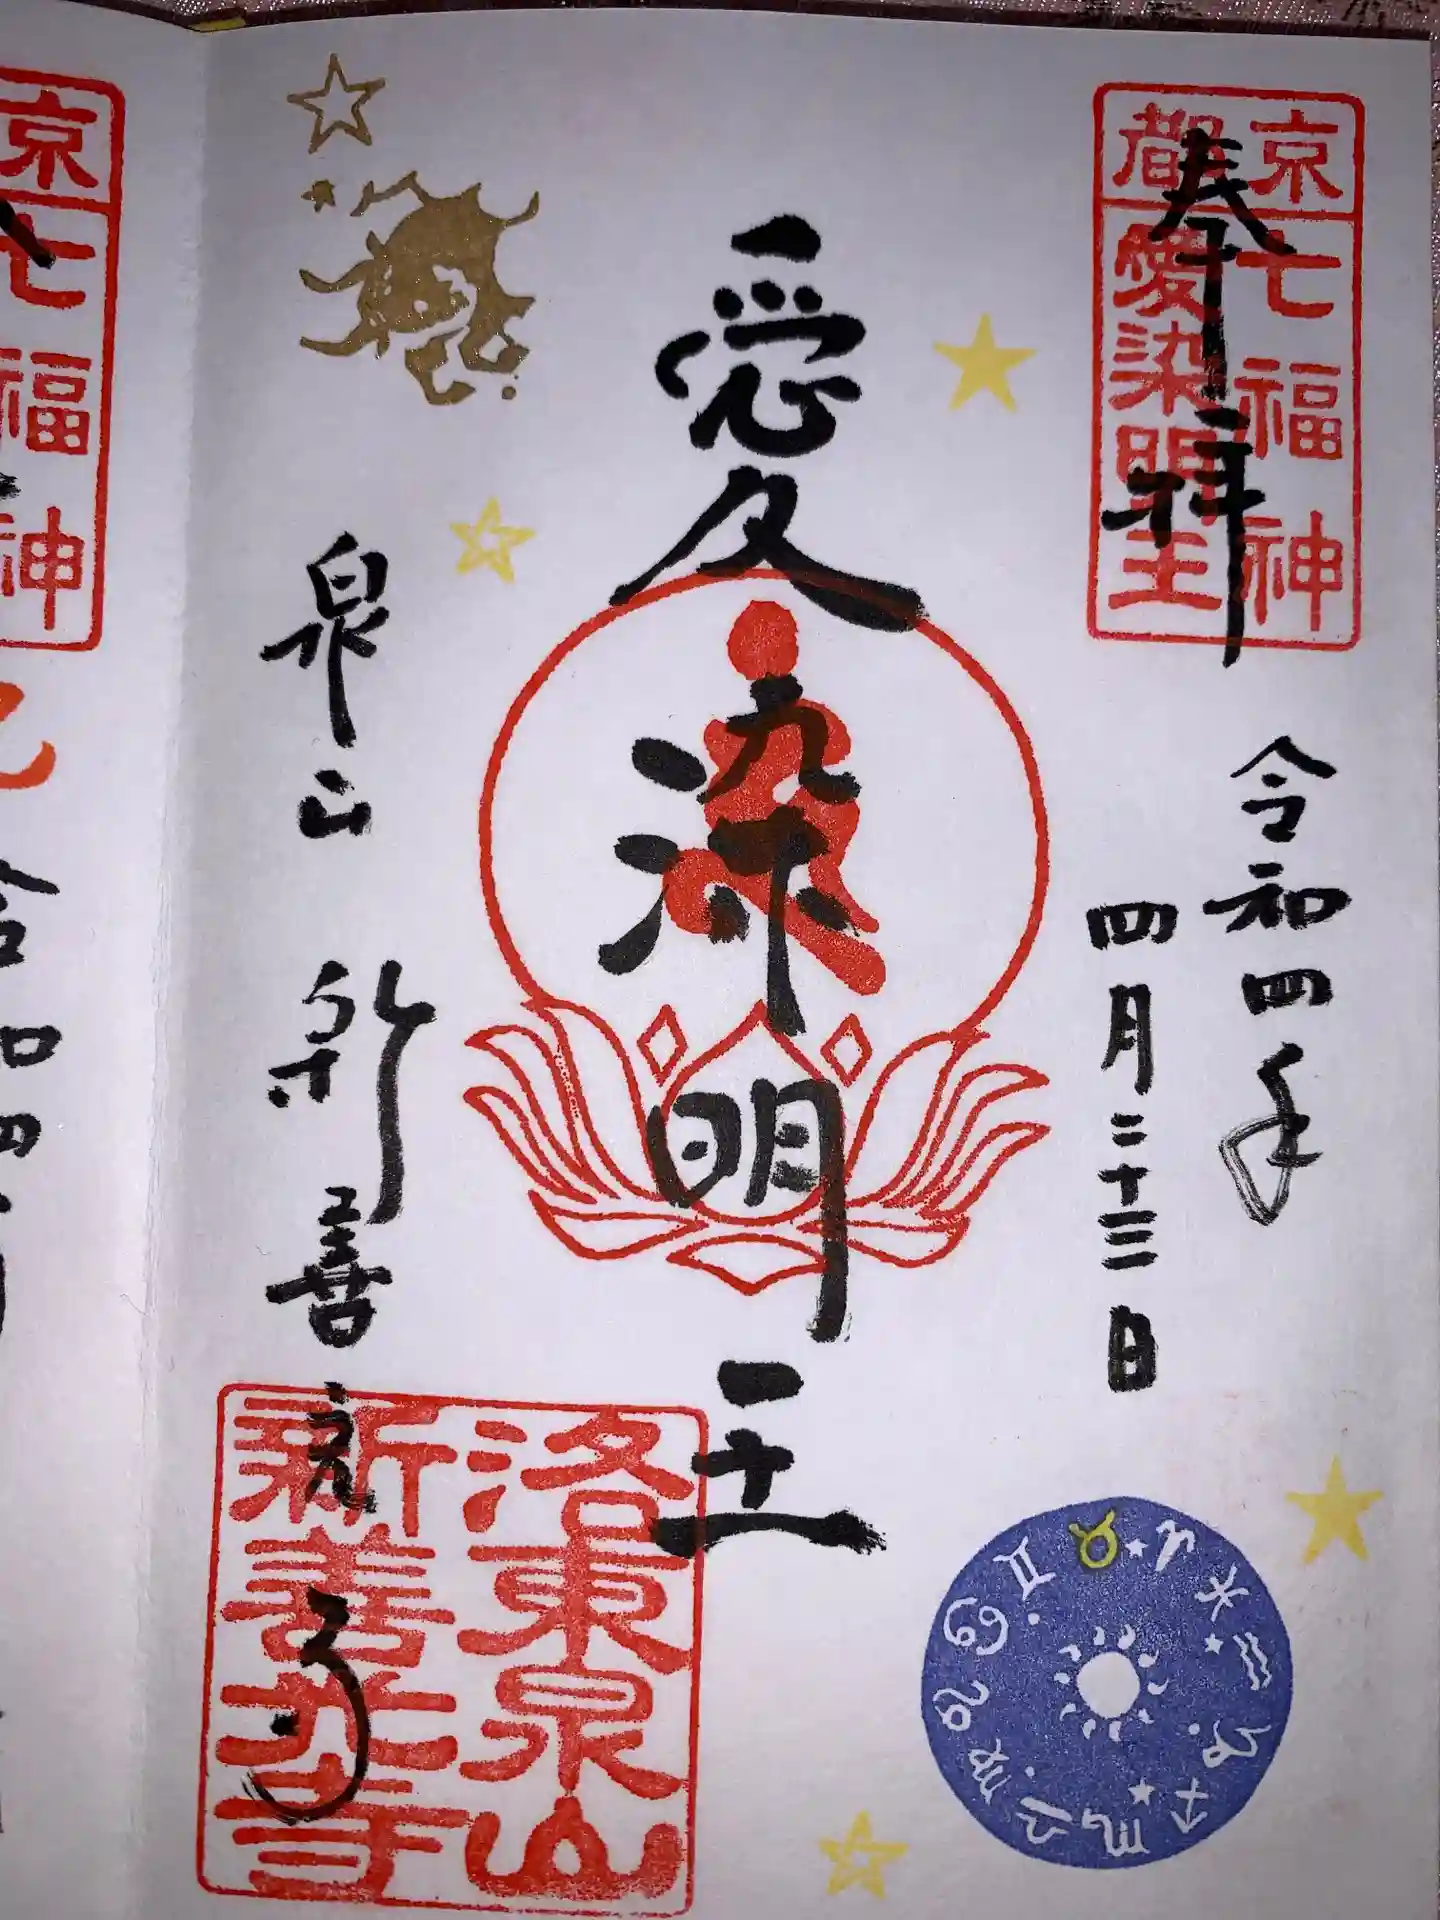 京都
七福神
愛染明王
奉拝
令和四年
四月二十三日
愛染明王
泉山 新善光寺
洛東泉山
新善光寺
京
七福神
令和四